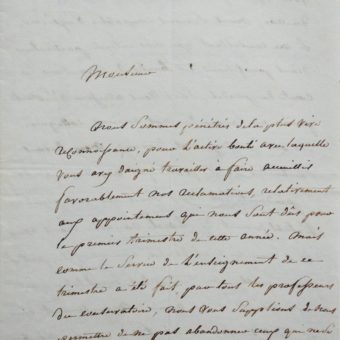 Monsieur
Nous Sommes pénétrés de la plus vive
reconnoissance, pour l'active bonté avec laquelle
vous avez daigné travailler à faire accueillir
favorablement nos réclamations, relativement
aux appointemens qui nous sont dûs pour
le premier trimestre de cette année. Mais
comme le Service de l'enseignement de ce
trimestre a été fait, par tous les professeurs
du conservatoire, nous vous supplions de nous
permettre de ne pas abandonner ceux qui ne se